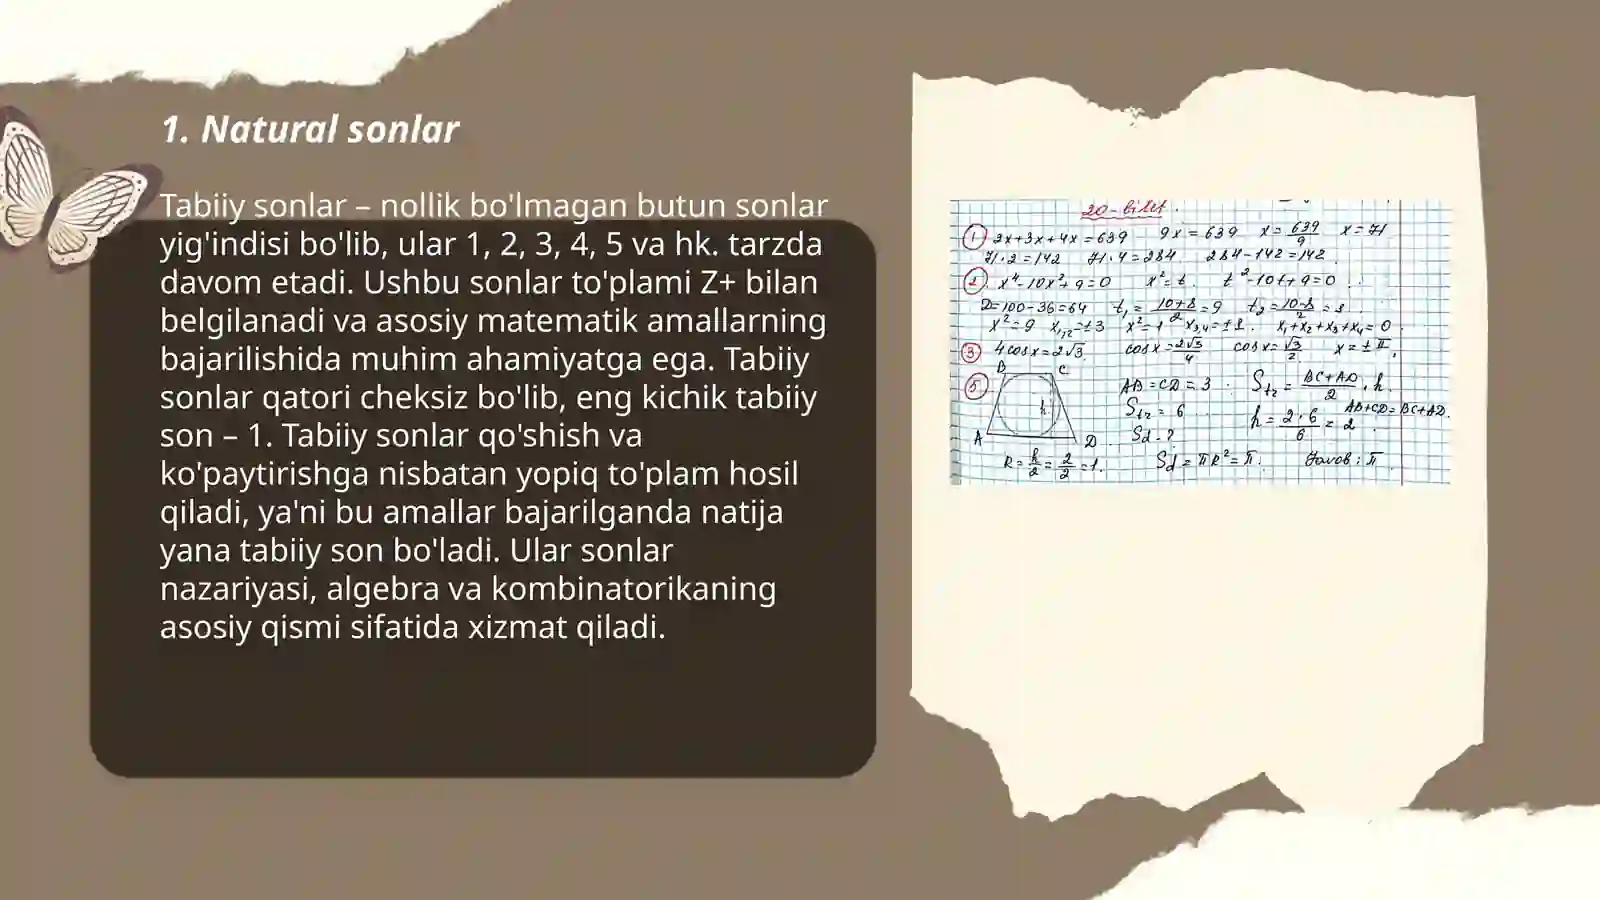 1. Natural sonlar
Tabiiy sonlar – nollik bo'lmagan butun sonlar
yig'indisi bo'lib, ular 1, 2, 3, 4, 5 va hk. tarzda
davom etadi. Ushbu sonlar to'plami Z+ bilan
belgilanadi va asosiy matematik amallarning
bajarilishida muhim ahamiyatga ega. Tabiiy
sonlar qatori cheksiz bo'lib, eng kichik tabiiy
son – 1. Tabiiy sonlar qo'shish va
ko'paytirishga nisbatan yopiq to'plam hosil
qiladi, ya'ni bu amallar bajarilganda natija
yana tabiiy son bo'ladi. Ular sonlar
nazariyasi, algebra va kombinatorikaning
asosiy qismi sifatida xizmat qiladi.
20-bilet.
1 2x+3x+4x=639 9x=639 x=639/9 x=71
71·2=142 71·4=284 284-142=142
2. x⁴-10x²+9=0 x²=t. t²-10t+9=0
D=100-36=64 t₁=(10+8)/2=9 t₂=(10-8)/2=1.
x²=9 x₁,₂=±3 x²=1 x₃,₄=±1. x₁+x₂+x₃+x₄=0
3 4cosx=2√3. cosx=2√3/4 cosx=√3/2 x=±π
5 B C AB=CD=3 Str=(BC+AD)/2·h.
h Str=6 h=2·6/6=2 AB+CD=BC+AD.
A D Sd-?
R=h/2=2/2=1. Sd=πR²=π. Javob: π